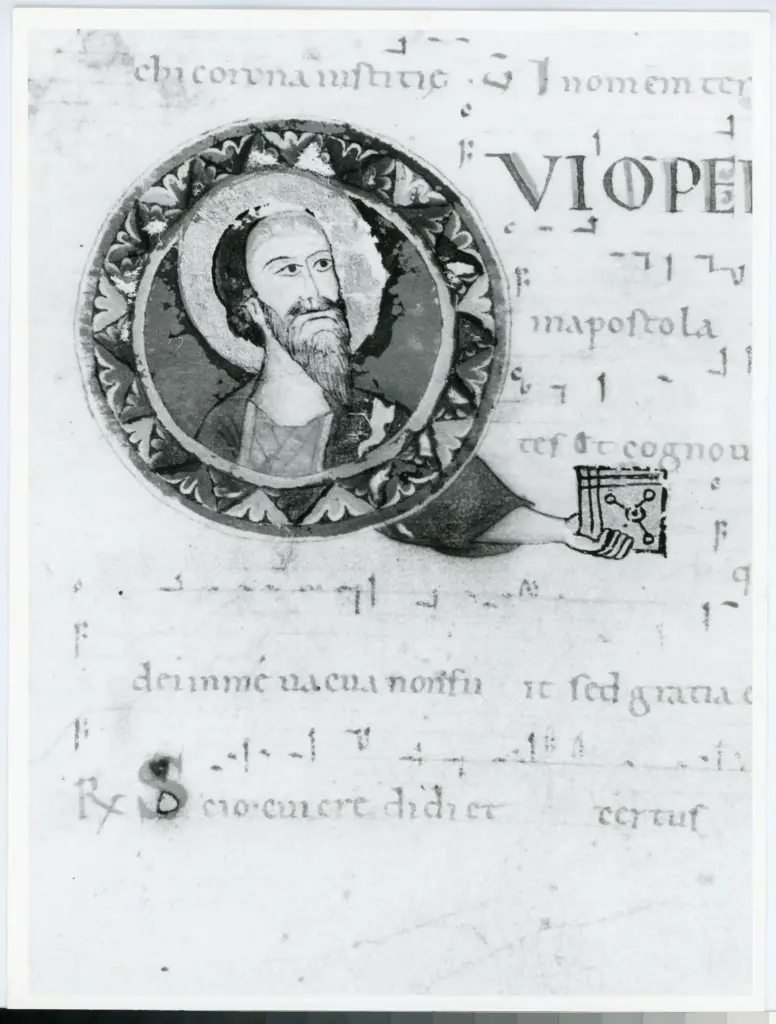 chi corona iustitię · In nomen ter
QVI OPE
in apostola
tes Et cognou
dei in me uacua non fu it sed gratia e
R S cio cui credidi et certus